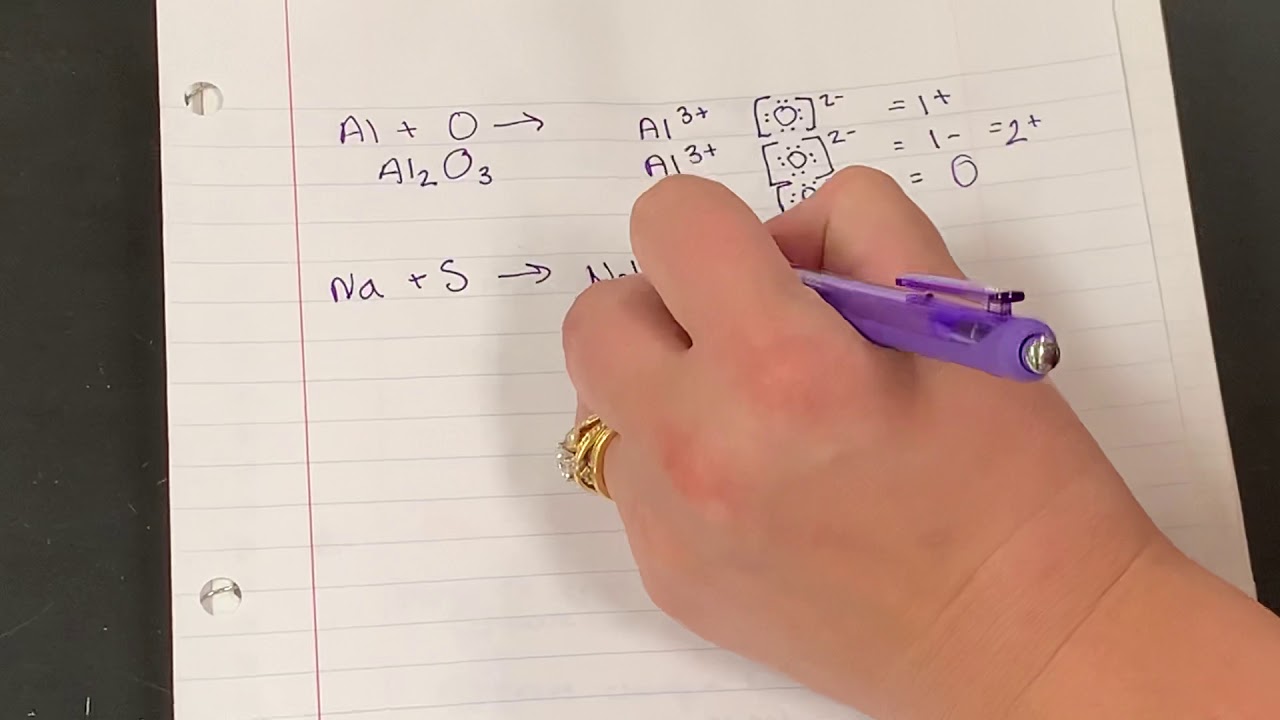 Al + O → Al³⁺ [:Ö:]²⁻ = 1⁺
Al₂O₃ Al³⁺ [:Ö:]²⁻ = 1- =2⁺
= 0
Na + S →